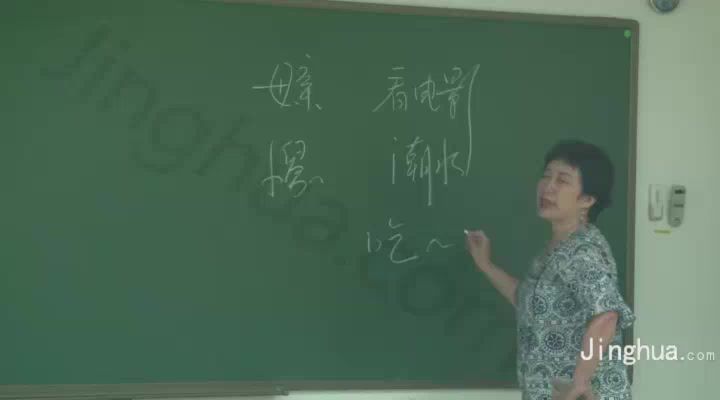 母亲 看电影
潮水
吃~
Jinghua.com
Jinghua.com